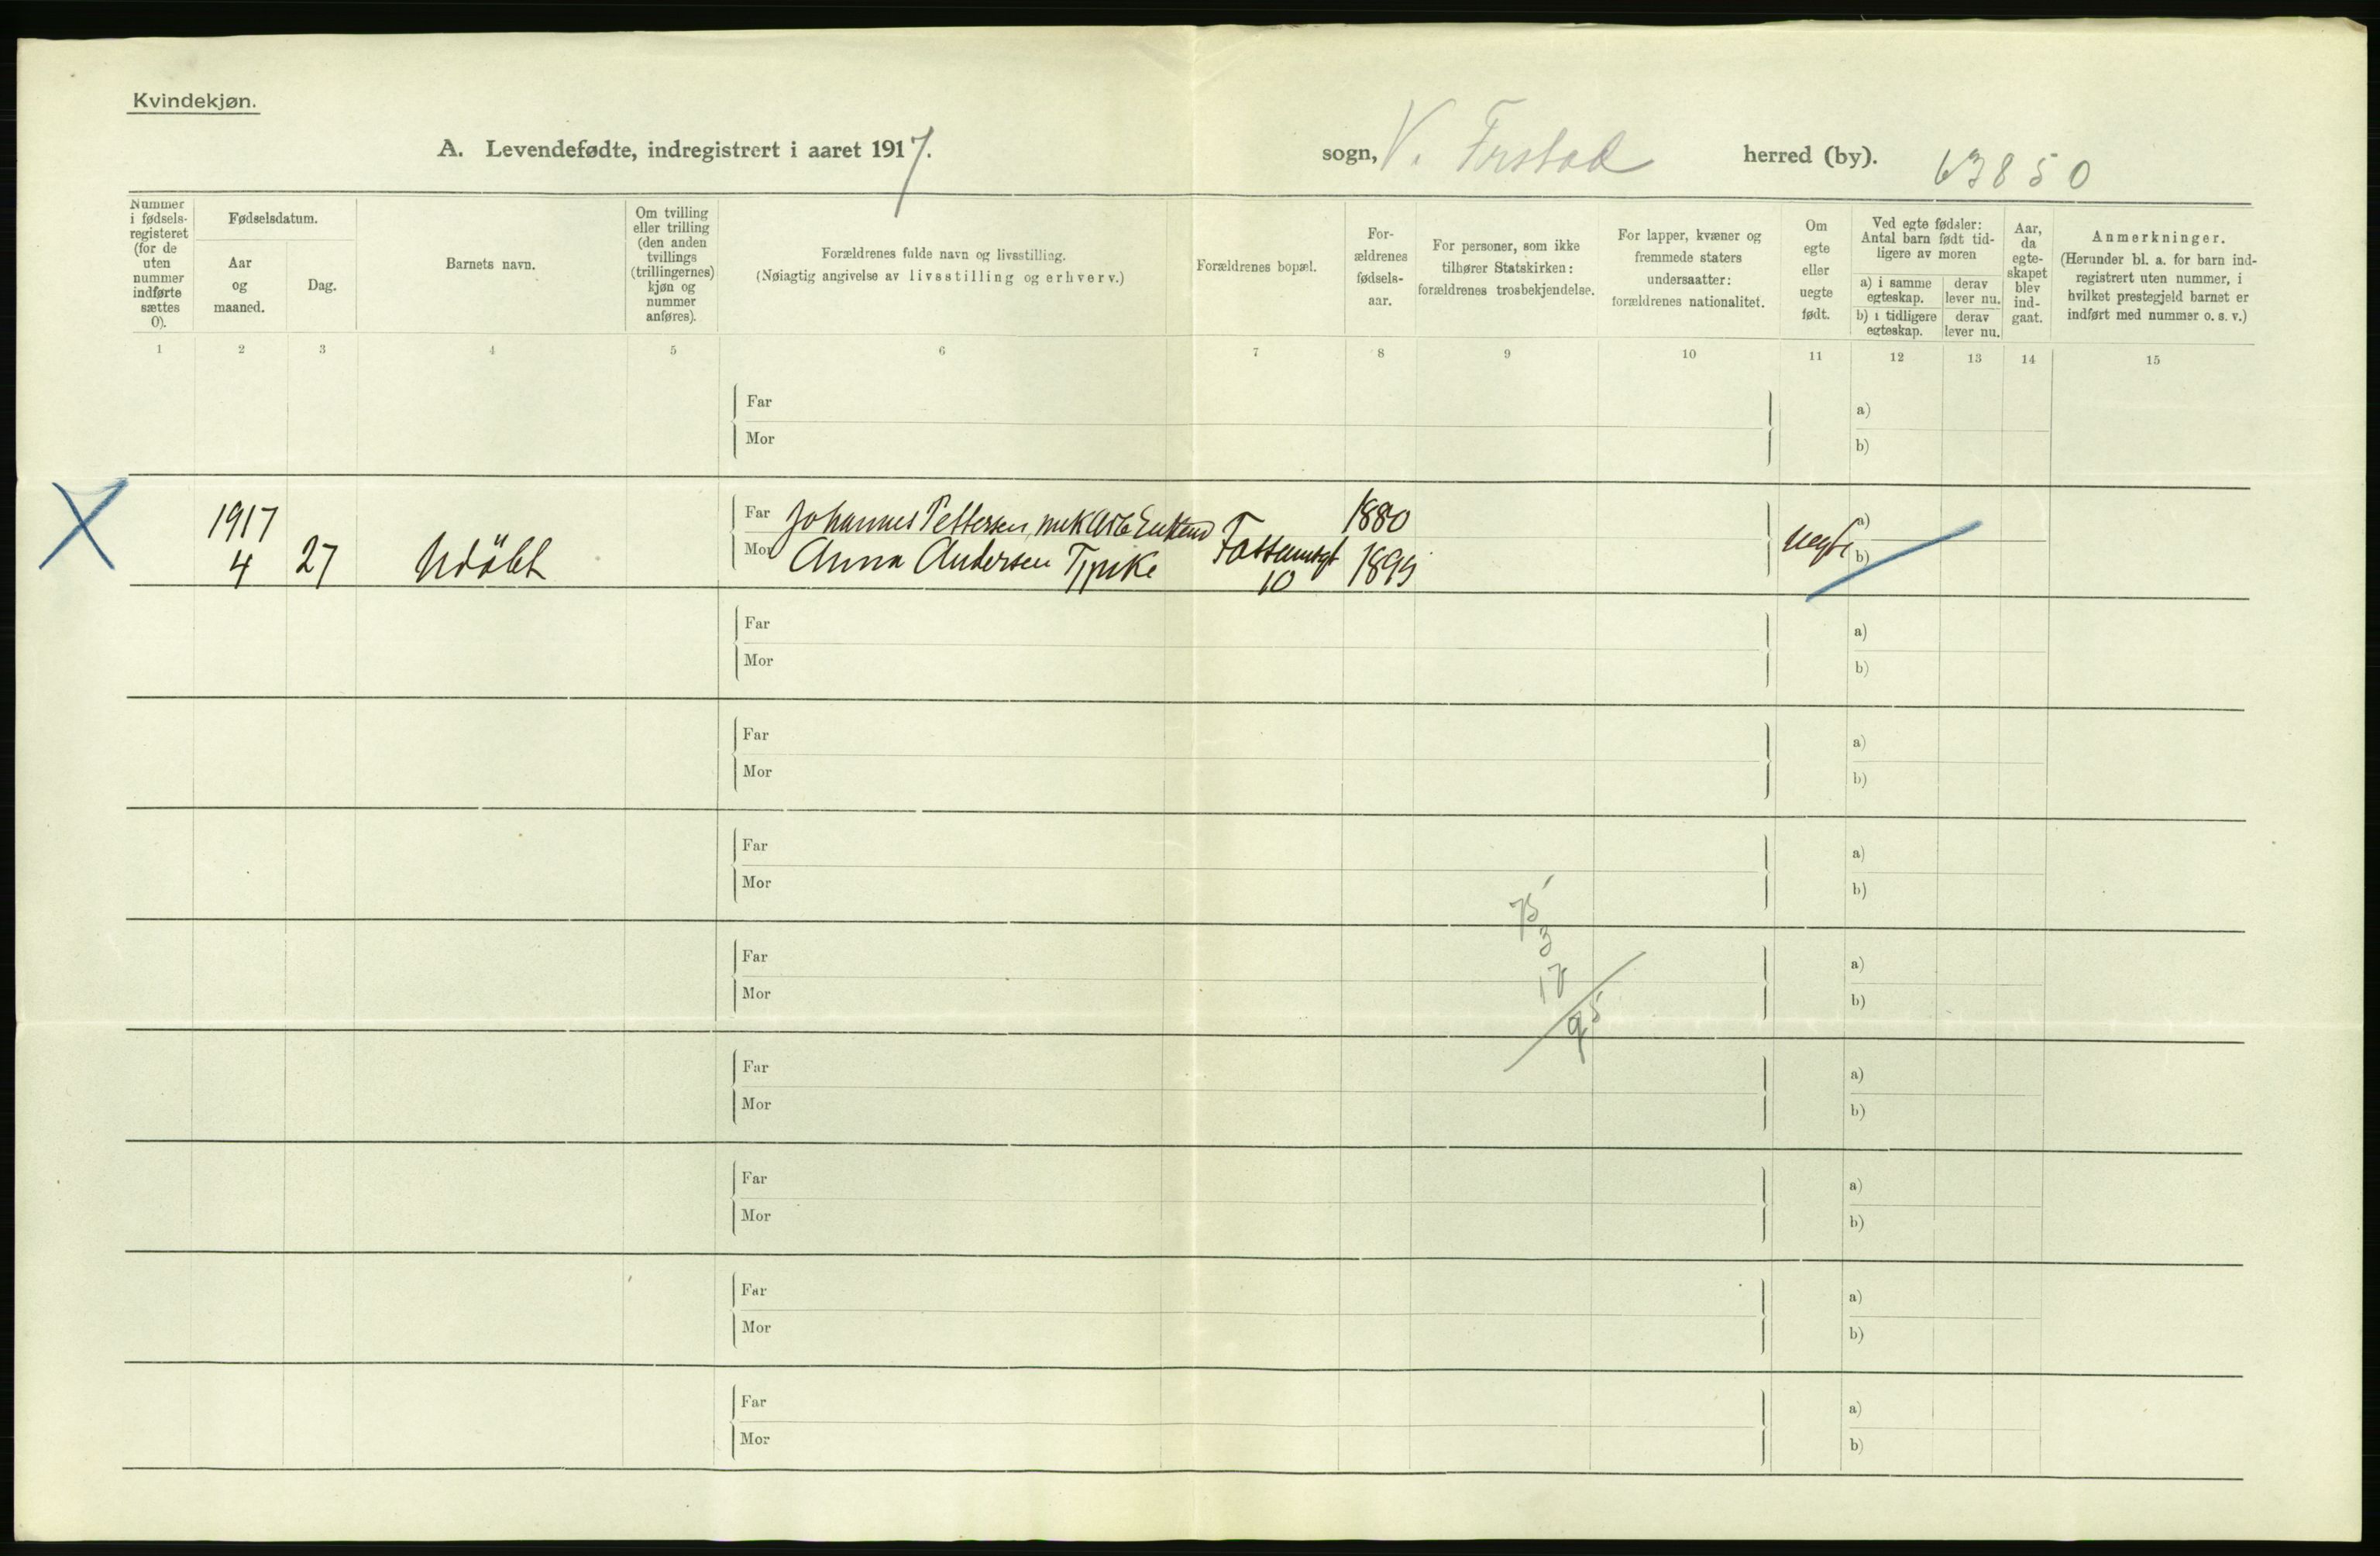 Kvindekjøn.
A. Levendefødte, indregistrert i aaret 1917.
sogn, V. Frstad herred (by). 63850
Nummer i fødsels-registeret (for de uten nummer indførte sættes 0).
Fødselsdatum.
Aar og maaned.
Dag.
Barnets navn.
Om tvilling eller trilling (den anden tvillings (trillingernes) kjøn og nummer anføres).
Forældrenes fulde navn og livsstilling.
(Nøiagtig angivelse av livsstilling og erhverv.)
Forældrenes bopæl.
For-ældrenes fødsels-aar.
For personer, som ikke tilhører Statskirken: forældrenes trosbekjendelse.
For lapper, kvæner og fremmede staters undersaatter: forældrenes nationalitet.
Om egte eller uegte født.
Ved egte fødsler: Antal barn født tid-ligere av moren
a) i samme egteskap.
derav lever nu.
b) i tidligere egteskap.
derav lever nu.
Aar, da egte-skapet blev ind-gaat.
Anmerkninger.
(Herunder bl. a. for barn ind-registrert uten nummer, i hvilket prestegjeld barnet er indført med nummer o. s. v.)
1 2 3 4 5 6 7 8 9 10 11 12 13 14 15
Far a)
Mor b)
1917 Far Johannes Pettersen, mek 1880 a)
4 27 Udöbt Mor Anna Andersen 10 1895 uegte b)
Far a)
Mor b)
Far a)
Mor b)
Far a)
Mor b)
75
3
Far a)
Mor 17 b)
95
Far a)
Mor b)
Far a)
Mor b)
Far a)
Mor b)
Far a)
Mor b)